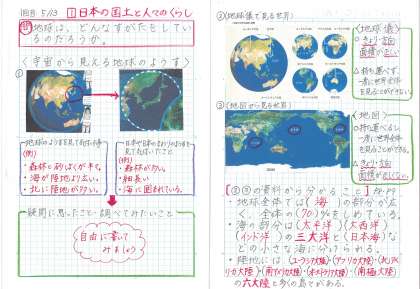 1日目 5/13 1 日本の国土と人々のくらし
地球は、どんなすがたをしているのだろうか。
〈宇宙から見える地球のようす〉
①
・地球のようすを見て気付いた事
(例)
・森林と砂ばくが多い。
・海が陸地より広い。
・北に陸地が多い。
・日本や日本のまわりのようすを見て気付いたこと
(例)
・森林が多い。
・細長い
・海に囲まれている。
疑問に思ったこと・調べてみたいこと
自由に書いて
みましょう
②〈地球儀で見る世界〉
〈地球儀〉
○きょり・方位
面積が正しい
△持ち運べず、
一度に世界全体
を見ることができない
③〈地図から見る世界〉
〈地図〉
○持ち運べるし、
一度に世界全体を
見ることができる。
△きょり・方位
面積が正しくない
【②③の資料から分かること】P8,P9
・地球全体では(海)の部分が広
く、全体の(70)%をしめている。
・海の部分は(太平洋)(大西洋)
(インド洋)の三大洋と(日本海)な
どの小さな海に分けられる。
・陸地には、(ユーラシア大陸)・(アフリカ大陸)・(北アメ
リカ大陸)・(南アメリカ大陸)・(オーストラリア大陸)・(南極大陸)
の六大陸と多くの島々がある。